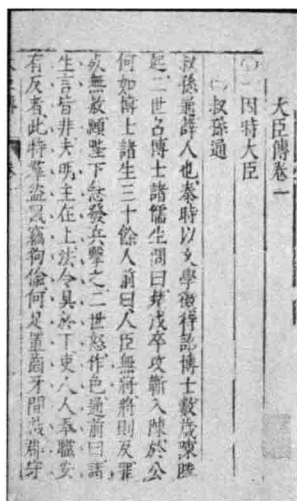 大臣傳卷一
〇一因時大臣
〇叔孫通
叔孫通薛人也秦時以文學徵待詔博士數歲陳勝
起二世召博士諸儒生問曰楚戍卒攻蘄入陳於公
何如博士諸生三十餘人前曰人臣無將將則反罪
死無赦願陛下急發兵擊之二世怒作色通前曰諸
生言皆非夫明主在上法令具於下吏人人奉職安
有反者此特羣盜鼠竊狗偷何足置齒牙間哉郡守